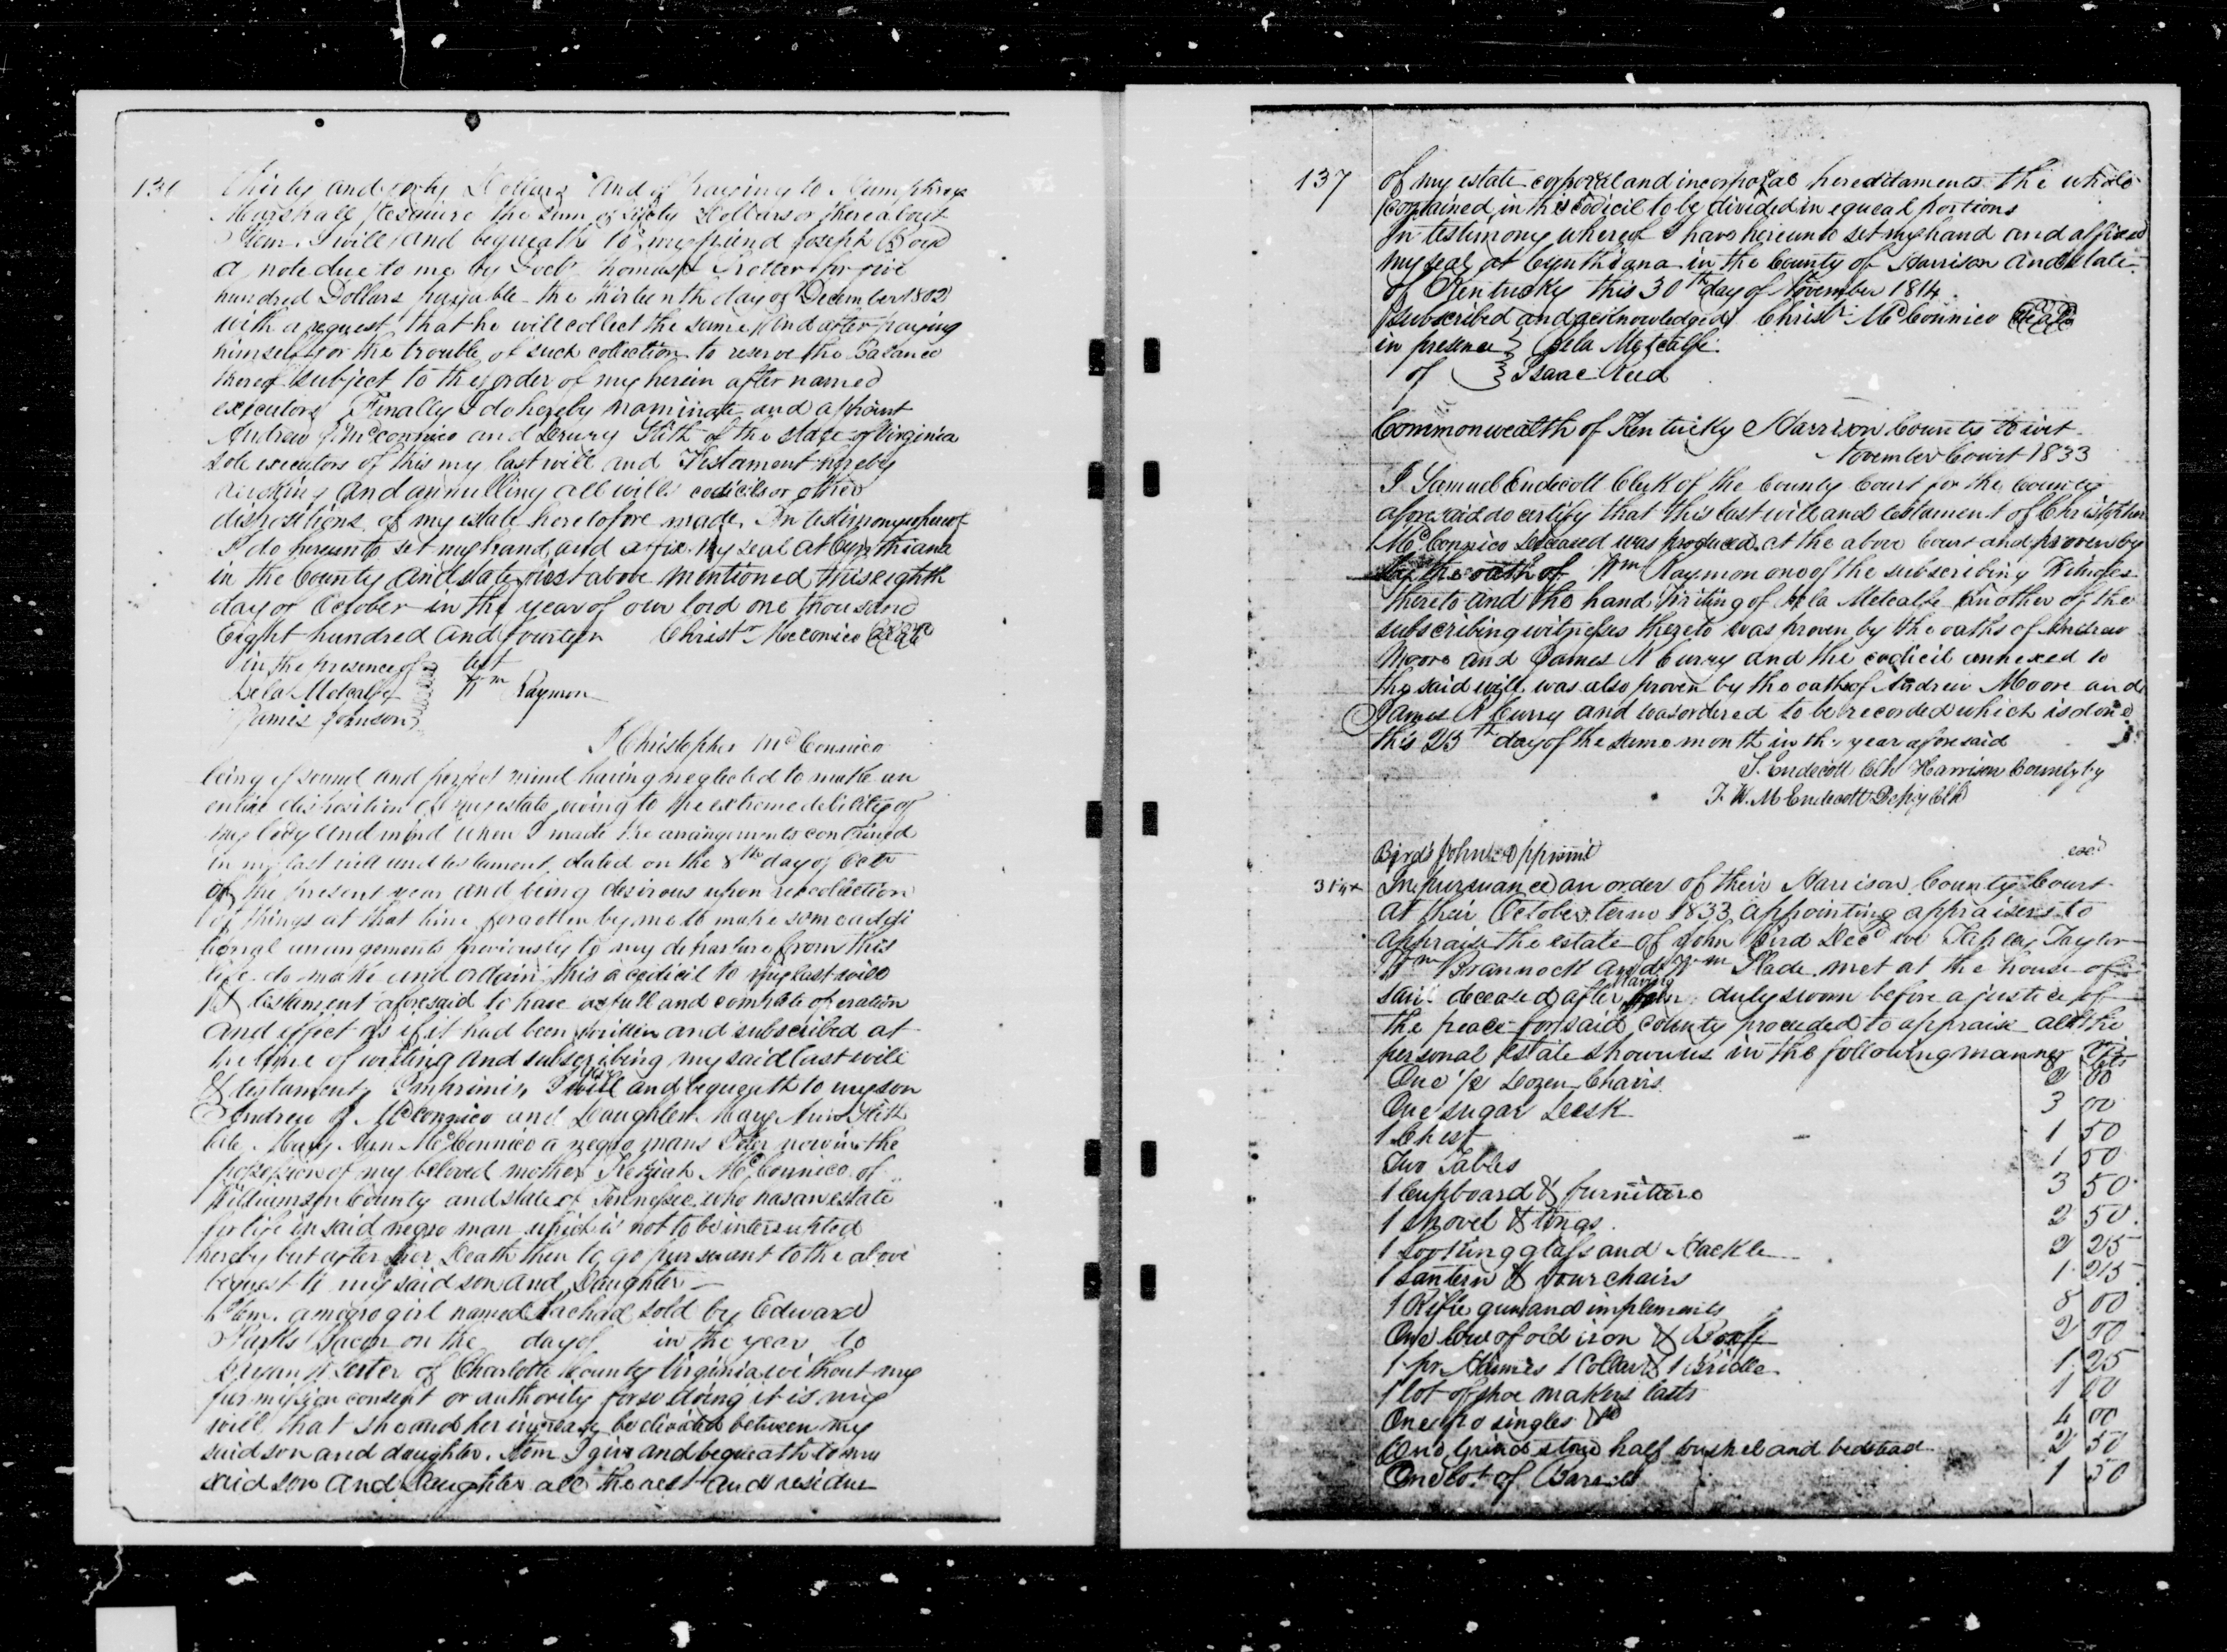 136
thirty and forty Dollars and of paying to Humphrey
Marshall Esquire the sum of sixty Dollars or thereabout
Item. I will and bequeath to my friend Joseph Boyd
a note due to me by Doct. Thomas Trotter for five
hundred Dollars payable the thirteenth day of December 1802
with a request that he will collect the same and after paying
himself for the trouble of such collection to reserve the Balance
thereof subject to the order of my herein after named
executors Finally I do hereby nominate and appoint
Andrew J McConnico and Drury Stith of the state of Virginia
sole executors of this my last will and Testament hereby
revoking and annulling all wills codicils or other
dispositions of my estate heretofore made. In testimony whereof
I do hereunto set my hand and affix my seal at Cynthiana
in the County and state first above mentioned this eighth
day of October in the year of our lord one thousand
Eight hundred and fourteen Christr McConico seal
in the presence of test
Bela Metcalfe Wm Raymon
James Johnson
I Christopher McConnico
being of sound and perfect mind having neglected to make an
entire disposition of my estate owing to the extreme debility of
my body and mind when I made the arrangements contained
in my last will and testament dated on the 8th day of Octr
of the present year and being desirous upon recollection
of things at that time forgotten by me to make some addi
tional arrangements previously to my departure from this
life do make and ordain this a codicil to my last will
& testament aforesaid to have as full and complete operation
and effect as if it had been written and subscribed at
the time of writing and subscribing my said last will
& testament, Imprimis, I will and bequeath to my son
Andrew J McConnico and Daughter Mary Ann Stith
late Mary Ann McConnico a negro mans Peter now in the
possession of my beloved mother Keziah McConnico of
Williamson County and state of Tennessee who has an estate
for life in said negro man which is not to be interrupted
hereby but after her Death then to go pursuant to the above
bequest to my said son and Daughter
Item. a negro girl named Rachael sold by Edward
Parks Bacon on the day of in the year to
Bryan W Lester of Charlotte County Virginia without my
permission consent or authority for so doing it is my
will that she and her increase be divided between my
said son and daughter. Item I give and bequeath to my
said son and Daughter all the rest and residue
137
of my estate corporal and incorporal hereditaments the whole
contained in this codicil to be divided in equal portions
In testimony whereof I have hereunto set my hand and affixed
my seal at Cynthiana in the County of Harrison and State
of Kentucky this 30th day of November 1814
Subscribed and acknowledged Christr McConnico seal
in presence Bela Metcalfe
of Isaac Reed
Commonwealth of Kentucky Harrison County to wit
November Court 1833
I Samuel Endicott Clerk of the County Court for the County
aforesaid do certify that this last will and testament of Christopher
McConnico Deceased was produced at the above Court and proven by
by the oath of Wm Raymon one of the subscribing Witnesses
thereto and the hand writing of Bela Metcalfe another of the
subscribing witnesses thereto was proven by the oaths of Andrew
Moore and James R Curry and the codicil annexed to
the said will was also proven by the oaths of Andrew Moore and
James R Curry and was ordered to be recorded which is done
this 25th day of the same month in the year aforesaid
S. Endecott Clk Harrison County by
J. W. M Endecott Depy Clk
Bird's John Appraismt
exd
In pursuance an order of their Harrison County Court
at their October term 1833 appointing appraisers to
appraise the estate of John Bird Decd we Tapley Taylor
Wm Brannock and Wm Slade met at the house of
said deceased after having duly sworn before a justice of
the peace for said County proceeded to appraise all the
personal estate shown us in the following manner $ cts
One 1/2 Dozen Chairs 2 00
One sugar Desk 3 00
1 Chest 1 50
Two Tables 1 50
1 Cupboard & furniture 3 50
1 shovel & tongs 2 50
1 looking glass and Hackle 2 25
1 Lantern & four chairs 1 25
1 Rifle gun and implements 8 00
One low of old iron & 2 00
1 pr Haimes 1 Collar & 1 Bridle 1 25
1 lot of shoe makers lasts 1 00
One singles 4 00
One Grind stone half bushel and bedstead 2 50
One lot of Barrels 1 50